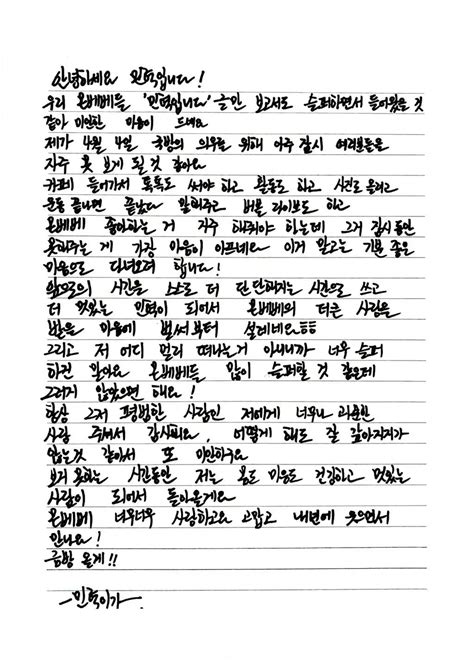 안녕하세요 민혁입니다!
우리 몬베베들 '민혁입니다' 글만 보고서도 슬퍼하면서 들어왔을 것
같아 미안한 마음이 드네요
제가 4월 4일 국방의 의무를 위해 아주 잠시 여러분들을
자주 못 보게 될 것 같아요
카페 들어가서 톡톡도 써야 하고 활동도 하고 사진도 올리고
운동 끝나면 끝났다 말해주고 버블 라이브도 하고
몬베베 좋아하는 거 자주 해줘야 하는데 그거 잠시동안
못해주는 게 가장 마음이 아프네요 이거 말고는 기분 좋은
마음으로 다녀오려 합니다!
앞으로의 시간을 스스로 더 단단해지는 시간으로 쓰고
더 멋있는 민혁이 되어서 몬베베의 더큰 사랑을
받을 마음에 벌써부터 설레네요ㅎㅎ
그리고 저 어디 멀리 떠나는거 아니니까 너무 슬퍼
하진 말아요 몬베베들 많이 슬퍼할 것 같은데
그러지 않았으면 해요!
항상 그저 평범한 사람인 저에게 너무나 과분한
사랑 주셔서 감사해요, 어떻게 해도 다 갚아지지가
않는것 같아서 또 미안하구요
보지 못하는 시간동안 저는 몸도 마음도 건강하고 멋있는
사람이 되어서 돌아올게요
몬베베 너무너무 사랑하고요 고맙고 내년에 웃으면서
만나요!
금방 올게!!
-민혁이가-